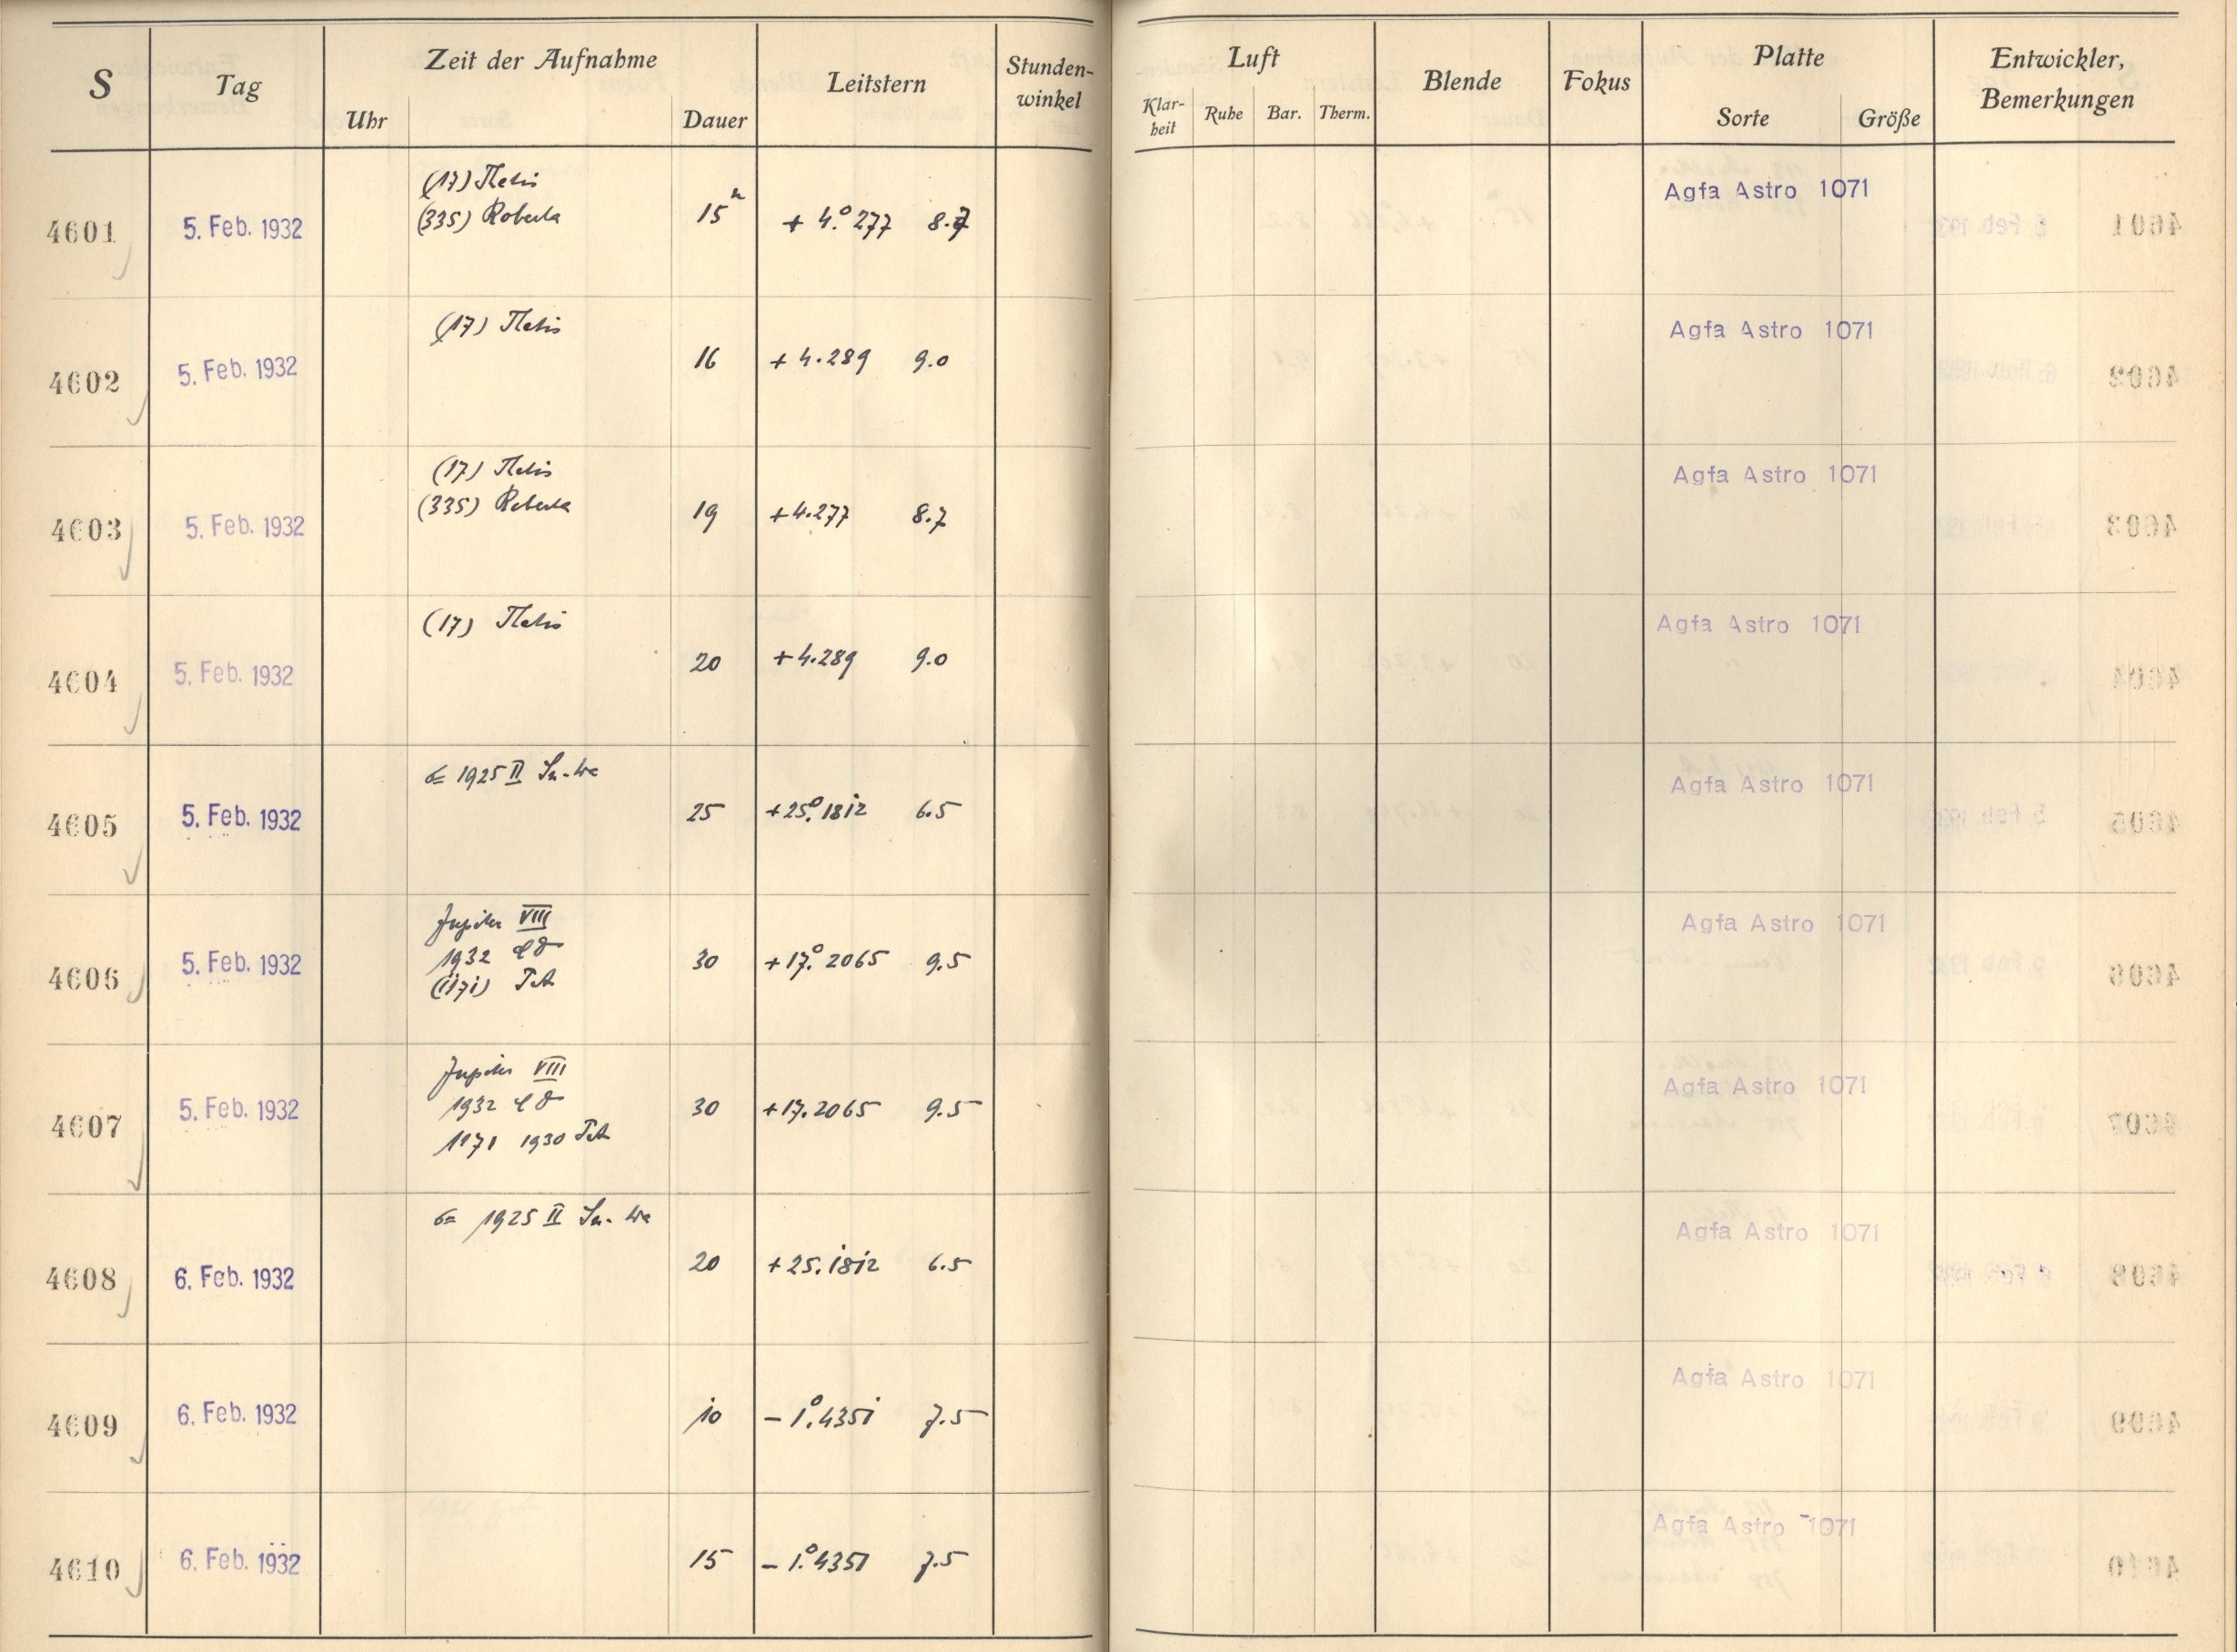 S Tag Zeit der Aufnahme Leitstern Stunden-winkel Luft Blende Fokus Platte Entwickler, Bemerkungen
Uhr Dauer Klar-heit Ruhe Bar. Therm. Sorte Größe
(17) Thetis
(335) Roberta
4601 5. Feb. 1932 15m + 4.°277 8.7 Agfa Astro 1071
(17) Thetis
4602 5. Feb. 1932 16 +4.289 9.0 Agfa Astro 1071
(17) Thetis
(335) Roberta
4603 5. Feb. 1932 19 +4.277 8.7 Agfa Astro 1071
(17) Thetis
4604 5. Feb. 1932 20 +4.289 9.0 Agfa Astro 1071
1925 II
4605 5. Feb. 1932 25 +25.°1812 6.5 Agfa Astro 1071
Jupiter VIII
1932
(1171)
4606 5. Feb. 1932 30 +17.°2065 9.5 Agfa Astro 1071
Jupiter VIII
1932
1171 1930
4607 5. Feb. 1932 30 +17.2065 9.5 Agfa Astro 1071
1925 II
4608 6. Feb. 1932 20 +25.1812 6.5 Agfa Astro 1071
4609 6. Feb. 1932 10 −1.°4351 7.5 Agfa Astro 1071
4610 6. Feb. 1932 15 −1.°4351 7.5 Agfa Astro 1071